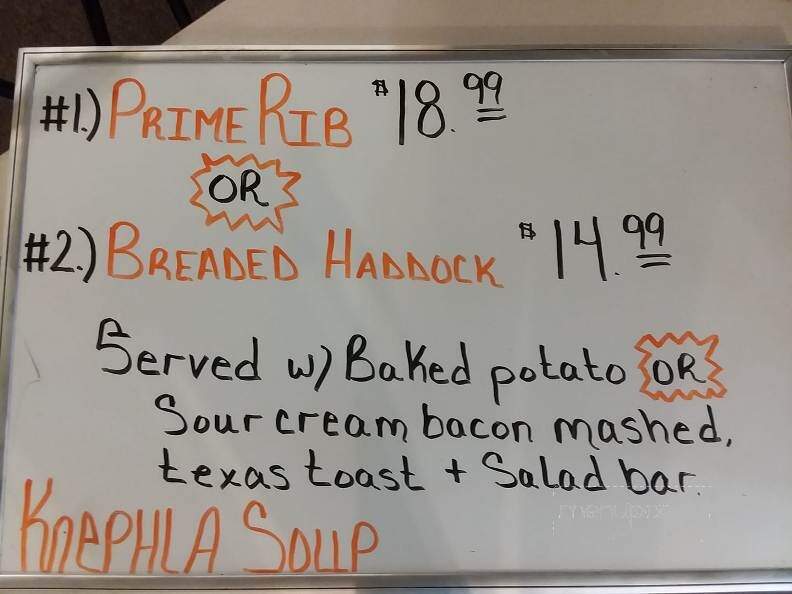 #1.) PRIME RIB $18.99
OR
#2.) BREADED HADDOCK $14.99
Served w/ Baked potato OR
Sour cream bacon mashed,
texas toast + Salad bar.
KNEPHLA SOUP
menupix